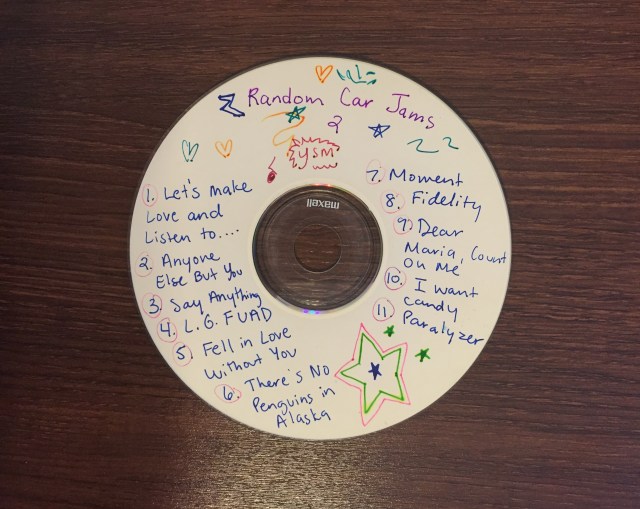 Random Car Jams
2
YSM
maxell
1. Let's make
Love and
Listen to....
2. Anyone
Else But You
3. Say Anything
4. L.G. FUAD
5. Fell in Love
Without You
6. There's No
Penguins in
Alaska
7. Moment
8. Fidelity
9. Dear
Maria, Count
On Me
10. I want
Candy
11. Paralyzer